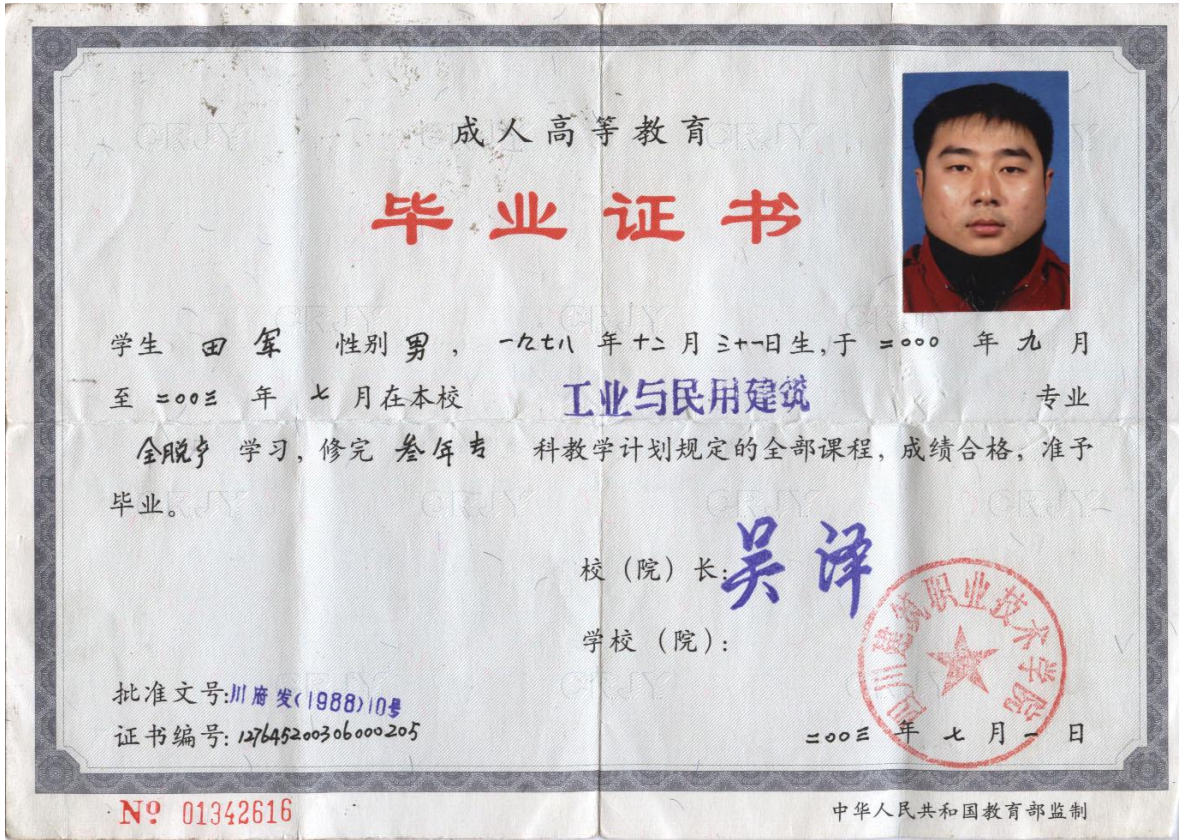 成人高等教育
毕业证书
学生 田军 性别 男， 一九七八 年 十二 月 三十一日生，于 二000 年 九 月
至 二00三 年 七 月在本校 工业与民用建筑 专业
全脱产 学习，修完 叁年专 科教学计划规定的全部课程，成绩合格，准予
毕业。
校（院）长：吴泽
学校（院）：
四川建筑职业技术学院
批准文号：川府发(1988)10号
证书编号：127645200306000205
二00三 年 七 月 一 日
№ 01342616
中华人民共和国教育部监制
CRJY